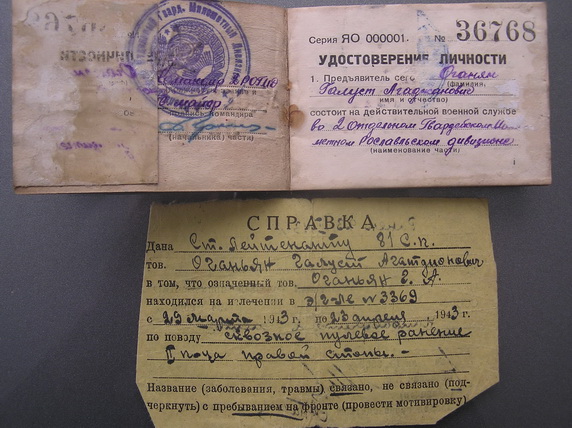 Серия ЯО 000001. № 36768
УДОСТОВЕРЕНИЕ ЛИЧНОСТИ
1. Предъявитель сего Оганян
(фамилия,
Галуст Агаджанович
имя и отчество)
состоит на действительной военной службе
во 2 Отдельном Гвардейском Ми-
метном Рославльском дивизионе
(наименование части)
майор
(начальника) части)
СПРАВКА
Дана Ст. Лейтенанту 81 с.п.
тов. Оганьян Галуст
в том, что означенный тов. Оганьян Г. А.
находился на излечении в э/г-ле № 3369
с 29 марта 1943 г. по 23 апреля 1943 г.
по поводу сквозное пулевое ранение
правой стопы. —
Название (заболевания, травмы) связано, не связано (под-
черкнуть) с пребыванием на фронте (провести мотивировку)